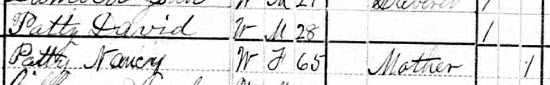 W M 21 1
Patty David W M 28 1
Patty Nancy W F 65 Mother 1